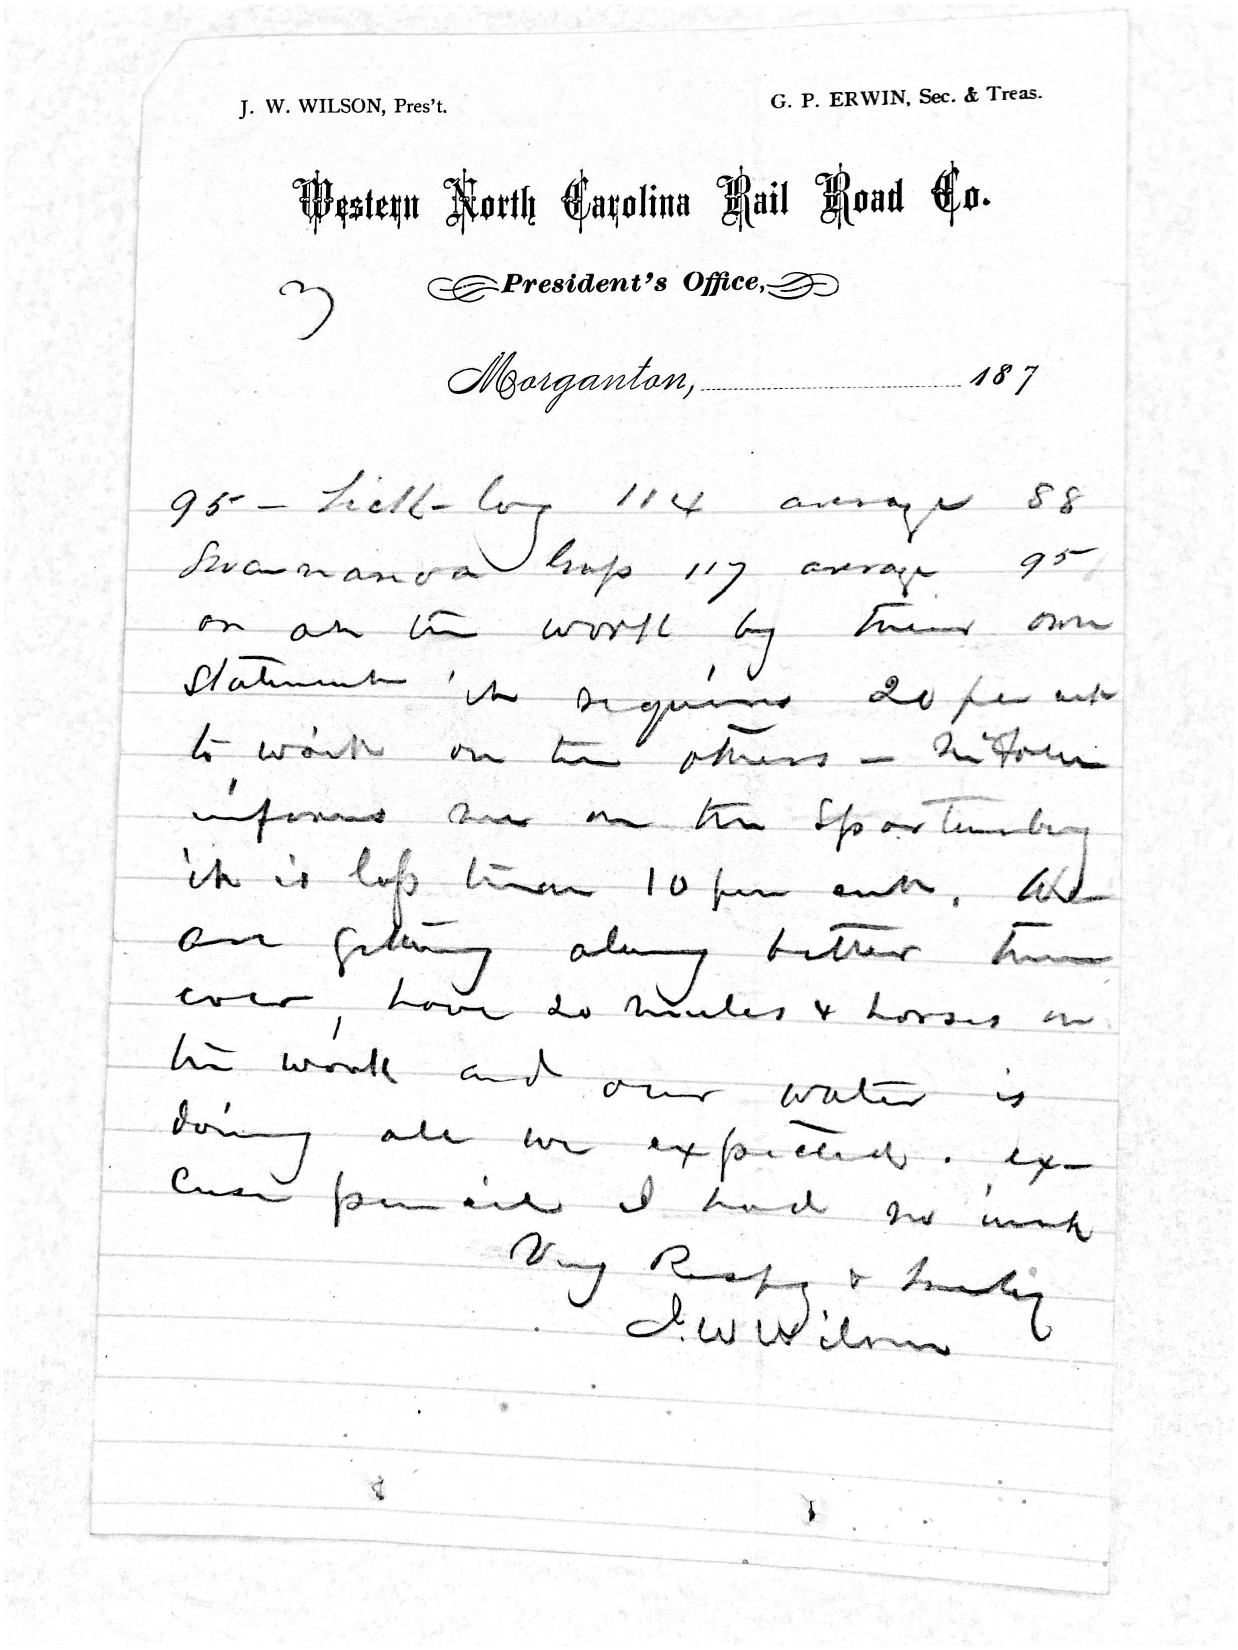 J. W. WILSON, Pres't.
G. P. ERWIN, Sec. & Treas.
Western North Carolina Rail Road Co.
President's Office,
3
Morganton, 187
95 – Lick-log 114 average 88
Swannanoa Gap 117 average 95
on all the work by their own
statement it requires 20 per cent
to work on the others –
informs me on the Spartenburg
it is less than 10 per cent. We
are getting along better than
ever, have 20 mules & horses on
the work and our water is
doing all we expected. ex-
cuse pencil I had no ink
Very Respy &
J. W Wilson